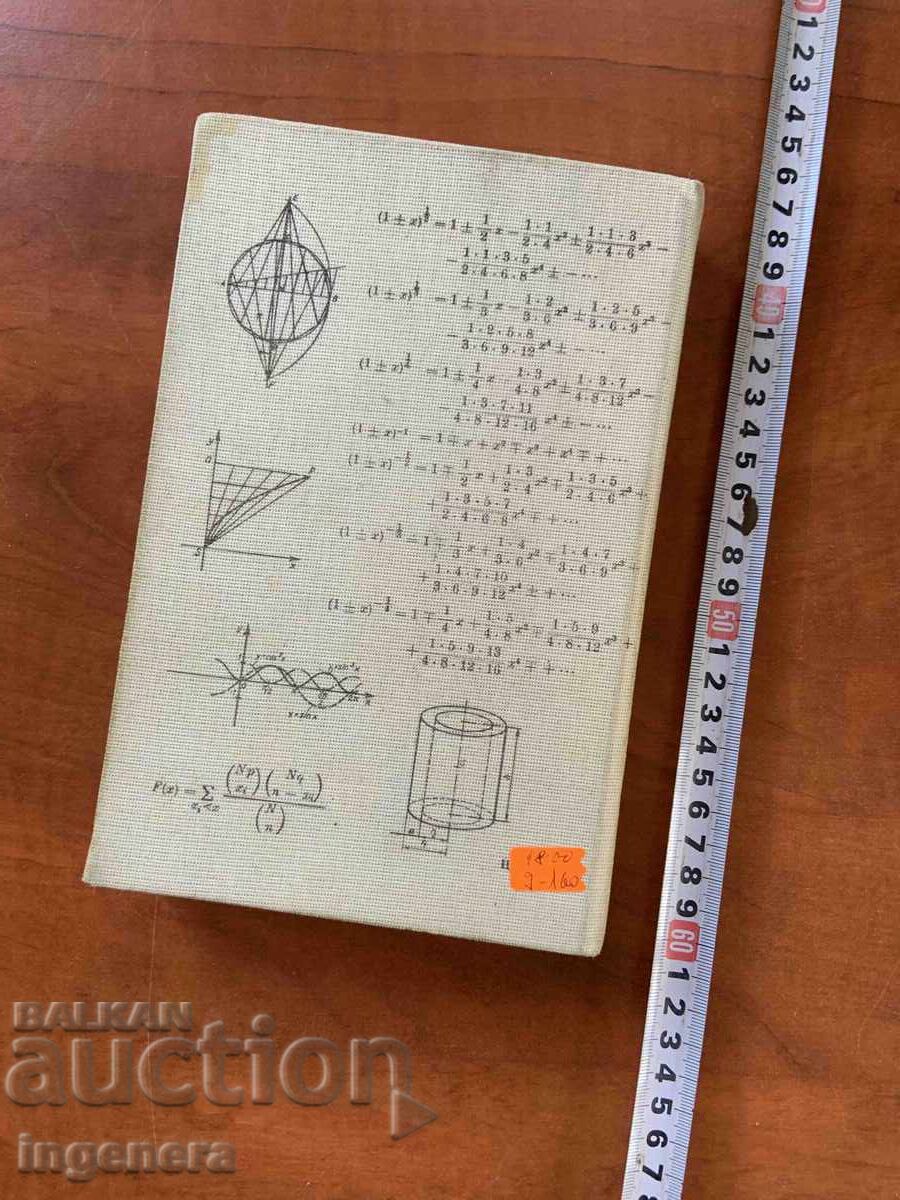 (1 ± x)^{1/2} = 1 ± 1/2 x − 1·1/2·4 x² ± 1·1·3/2·4·6 x³ −
− 1·1·3·5/2·4·6·8 x⁴ ± − ...
(1 ± x)^{1/3} = 1 ± 1/3 x − 1·2/3·6 x² ± 1·2·5/3·6·9 x³ −
− 1·2·5·8/3·6·9·12 x⁴ ± − ...
(1 ± x)^{1/4} = 1 ± 1/4 x − 1·3/4·8 x² ± 1·3·7/4·8·12 x³ −
− 1·3·7·11/4·8·12·16 x⁴ ± − ...
(1 ± x)⁻¹ = 1 ∓ x + x² ∓ x³ + x⁴ ∓ + ...
(1 ± x)^{−1/2} = 1 ∓ 1/2 x + 1·3/2·4 x² ∓ 1·3·5/2·4·6 x³ +
+ 1·3·5·7/2·4·6·8 x⁴ ∓ + ...
(1 ± x)^{−1/3} = 1 ∓ 1/3 x + 1·4/3·6 x² ∓ 1·4·7/3·6·9 x³ +
+ 1·4·7·10/3·6·9·12 x⁴ ± + ...
(1 ± x)^{−1/4} = 1 ∓ 1/4 x + 1·5/4·8 x² ∓ 1·5·9/4·8·12 x³ +
+ 1·5·9·13/4·8·12·16 x⁴ ∓ + ...
y=sin x
F(x) = ∑_{x_i<x} (Np x_i)(Nq n − x_i)/(N n)
18.00
9-160
1 2 3 4 5 6 7 8 9 40 1 2 3 4 5 6 7 8 9 50 1 2 3 4 5 6 7 8 9 60 1 2 3 4 5 6 7 8
BALKAN
auction
ingenera